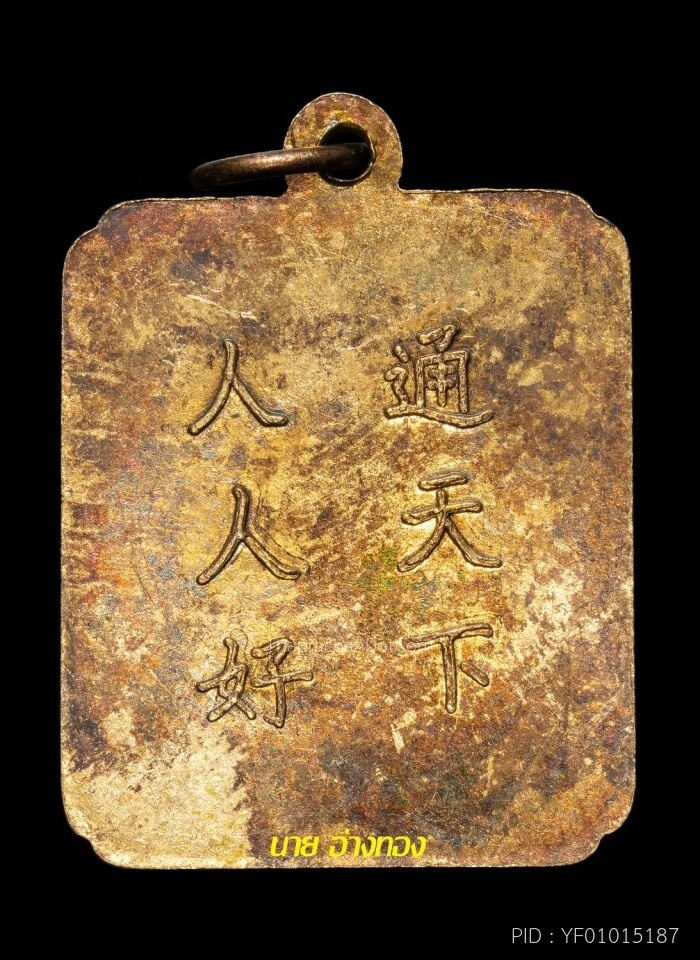 通天下
人人好
นาย อ่างทอง
PID : YF01015187